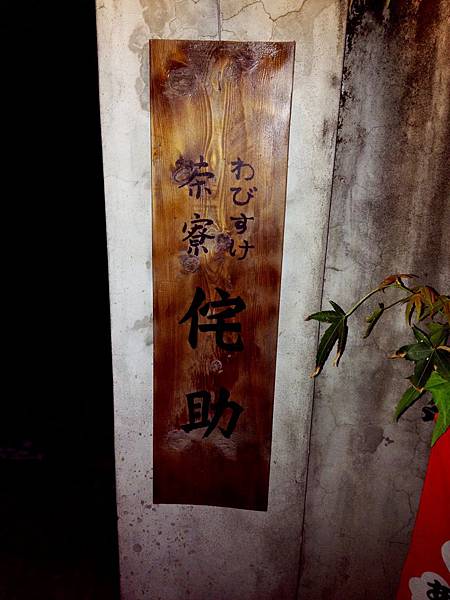 わびすけ
茶寮 侘助